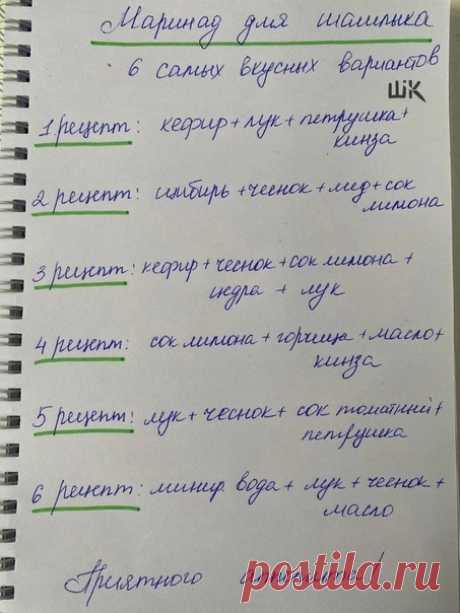 Маринад для шашлыка
6 самых вкусных вариантов
ШК
1 рецепт: кефир + лук + петрушка +
кинза
2 рецепт: имбирь + чеснок + мед + сок
лимона
3 рецепт: кефир + чеснок + сок лимона +
цедра + лук
4 рецепт: сок лимона + горчица + масло +
кинза
5 рецепт: лук + чеснок + сок томатный +
петрушка
6 рецепт: минер. вода + лук + чеснок +
масло
Приятного !
postila.ru